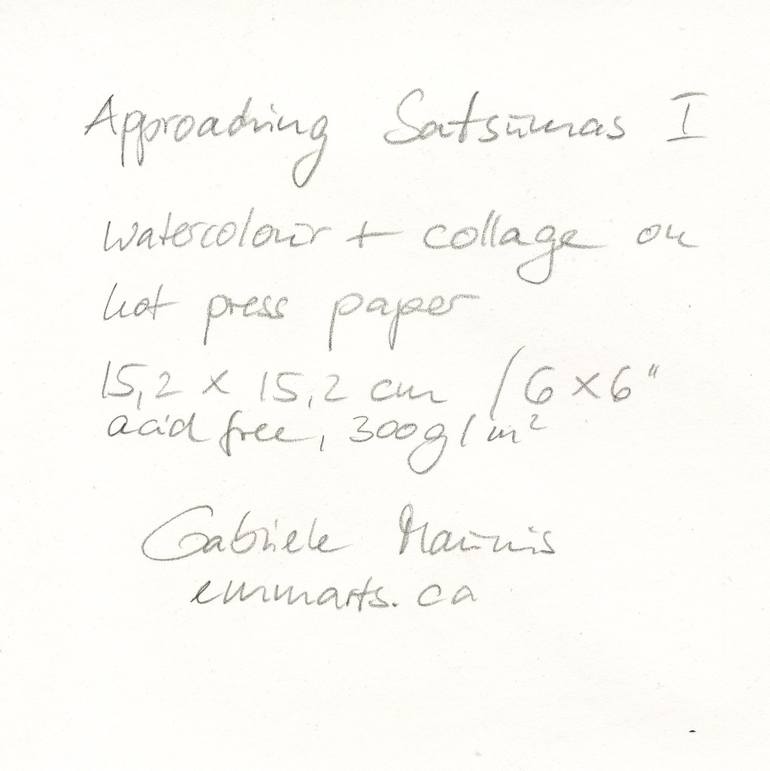 Approaching Satsumas I
watercolour + collage on
hot press paper
15,2 x 15,2 cm / 6 x 6"
acid free, 300g/m²
Gabriele Maurus
emmarts.ca